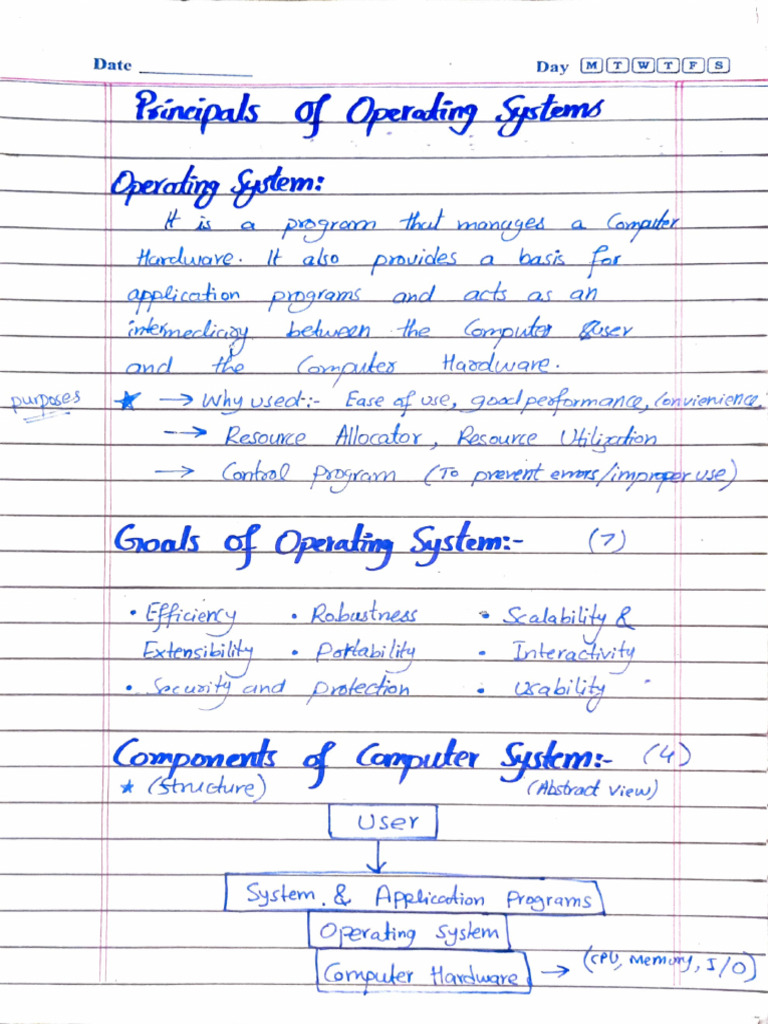 Date Day M T W T F S
Principals of Operating Systems
Operating System:
It is a program that manages a Computer
Hardware. It also provides a basis for
application programs and acts as an
intermediary between the Computer user
and the Computer Hardware.
purposes ★ → Why used:- Ease of use, good performance, Convienience,
→ Resource Allocator, Resource Utilization
→ Control Program (To prevent errors/improper use)
Goals of Operating System:- (7)
• Efficiency • Robustness • Scalability &
Extensibility • Portability • Interactivity
• Security and Protection • Usability
Components of Computer System:- (4)
★ (Structure) (Abstract view)
User
System & Application Programs
Operating System
Computer Hardware → (CPU, Memory, I/O)